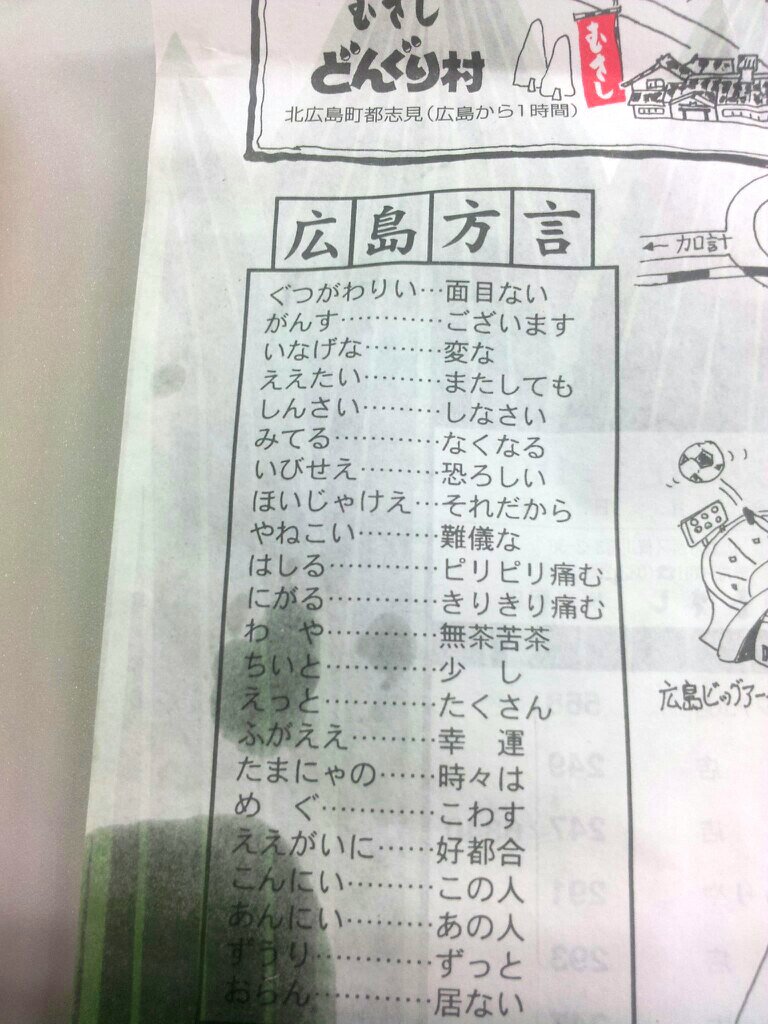 むさし
どんぐり村
北広島町都志見(広島から1時間)
むさし
←加計
広島方言
ぐつがわりい…面目ない
がんす…………ございます
いなげな………変な
ええたい………またしても
しんさい………しなさい
みてる…………なくなる
いびせえ………恐ろしい
ほいじゃけえ…それだから
やねこい………難儀な
はしる…………ピリピリ痛む
にがる…………きりきり痛む
わ　や…………無茶苦茶
ちいと…………少　し
えっと…………たくさん
ふがええ………幸　運
たまにゃの……時々は
め　ぐ…………こわす
ええがいに……好都合
こんにい………この人
あんにい………あの人
ずうり…………ずっと
おらん…………居ない
広島ビッグアー